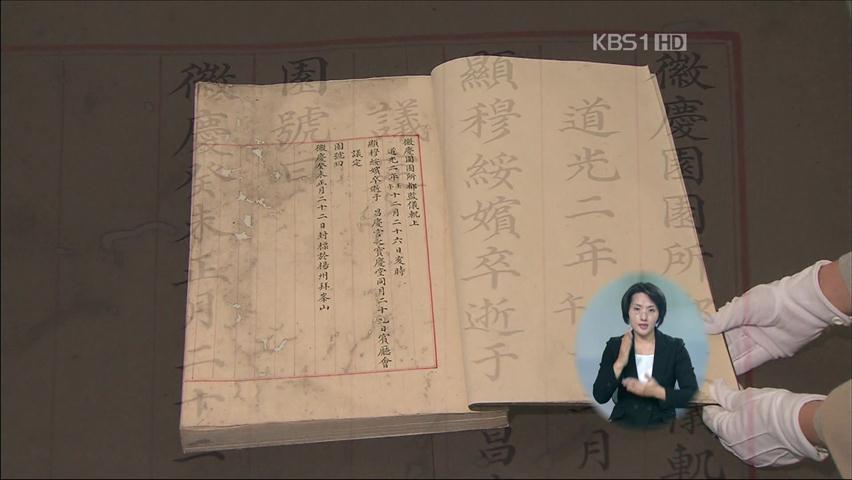 KBS1 HD
徽慶園園所都監儀軌上
道光二年壬午十二月二十六日亥時
顯穆綏嬪卒逝于 昌慶宮之寶慶堂同月二十九日賓廳會
議定
園號曰
徽慶癸未正月二十二日封標於楊州拜峯山
徽慶園園所都 儀軌
道光二年 午 月
顯穆綏嬪卒逝于 昌
議
園號曰
徽慶癸未正月二十二